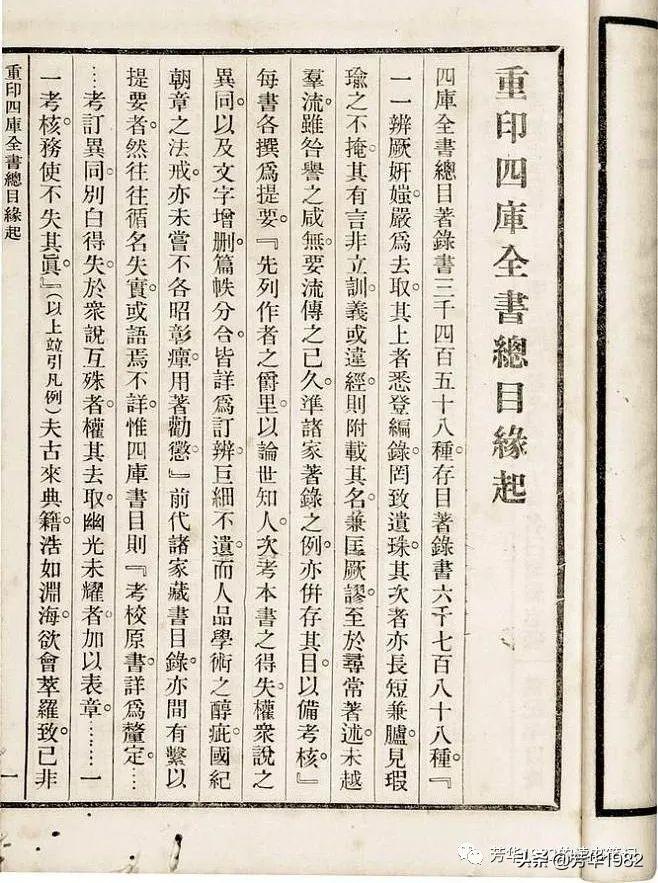 重印四庫全書總目緣起
四庫全書總目著錄書三千四百五十八種。存目著錄書六千七百八十八種。『
一一辨厥妍媸。嚴爲去取。其上者悉登編錄。罔致遺珠。其次者亦長短兼臚。見瑕
瑜之不掩。其有言非立訓。義或違經。則附載其名。兼匡厥謬。至於尋常著述。未越
羣流。雖咎譽之咸無。要流傳之已久。準諸家著錄之例。亦併存其目。以備考核。』
每書各撰爲提要。『先列作者之爵里。以論世知人。次考本書之得失。權衆說之
異同。以及文字增删。篇帙分合。皆詳爲訂辨。巨細不遺。而人品學術之醇疵。國紀
朝章之法戒。亦未嘗不各昭彰癉。用著勸懲。』前代諸家藏書目錄。亦間有繫以
提要者。然往往循名失實。或語焉不詳。惟四庫書目。則『考校原書。詳爲釐定。…
…考訂異同。別白得失。於衆說互殊者。權其去取。幽光未耀者。加以表章。………一
一考核。務使不失其眞。』(以上竝引凡例)夫古來典籍。浩如淵海。欲會萃羅致。已非
重印四庫全書總目緣起
一
头条 @芳华1982